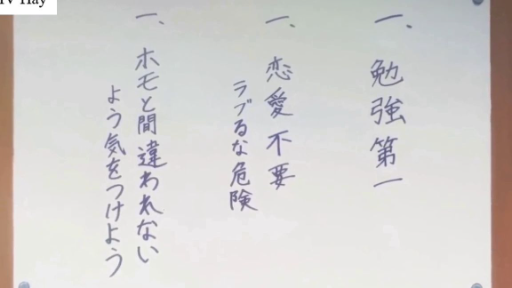 TV Hay
一、勉強第一
一、恋愛不要
ラブるな危険
一、ホモと間違われない
よう気をつけよう